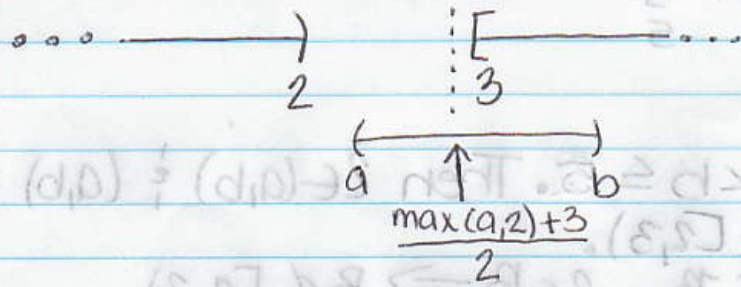 2 3
a b
max(a,2)+3
2